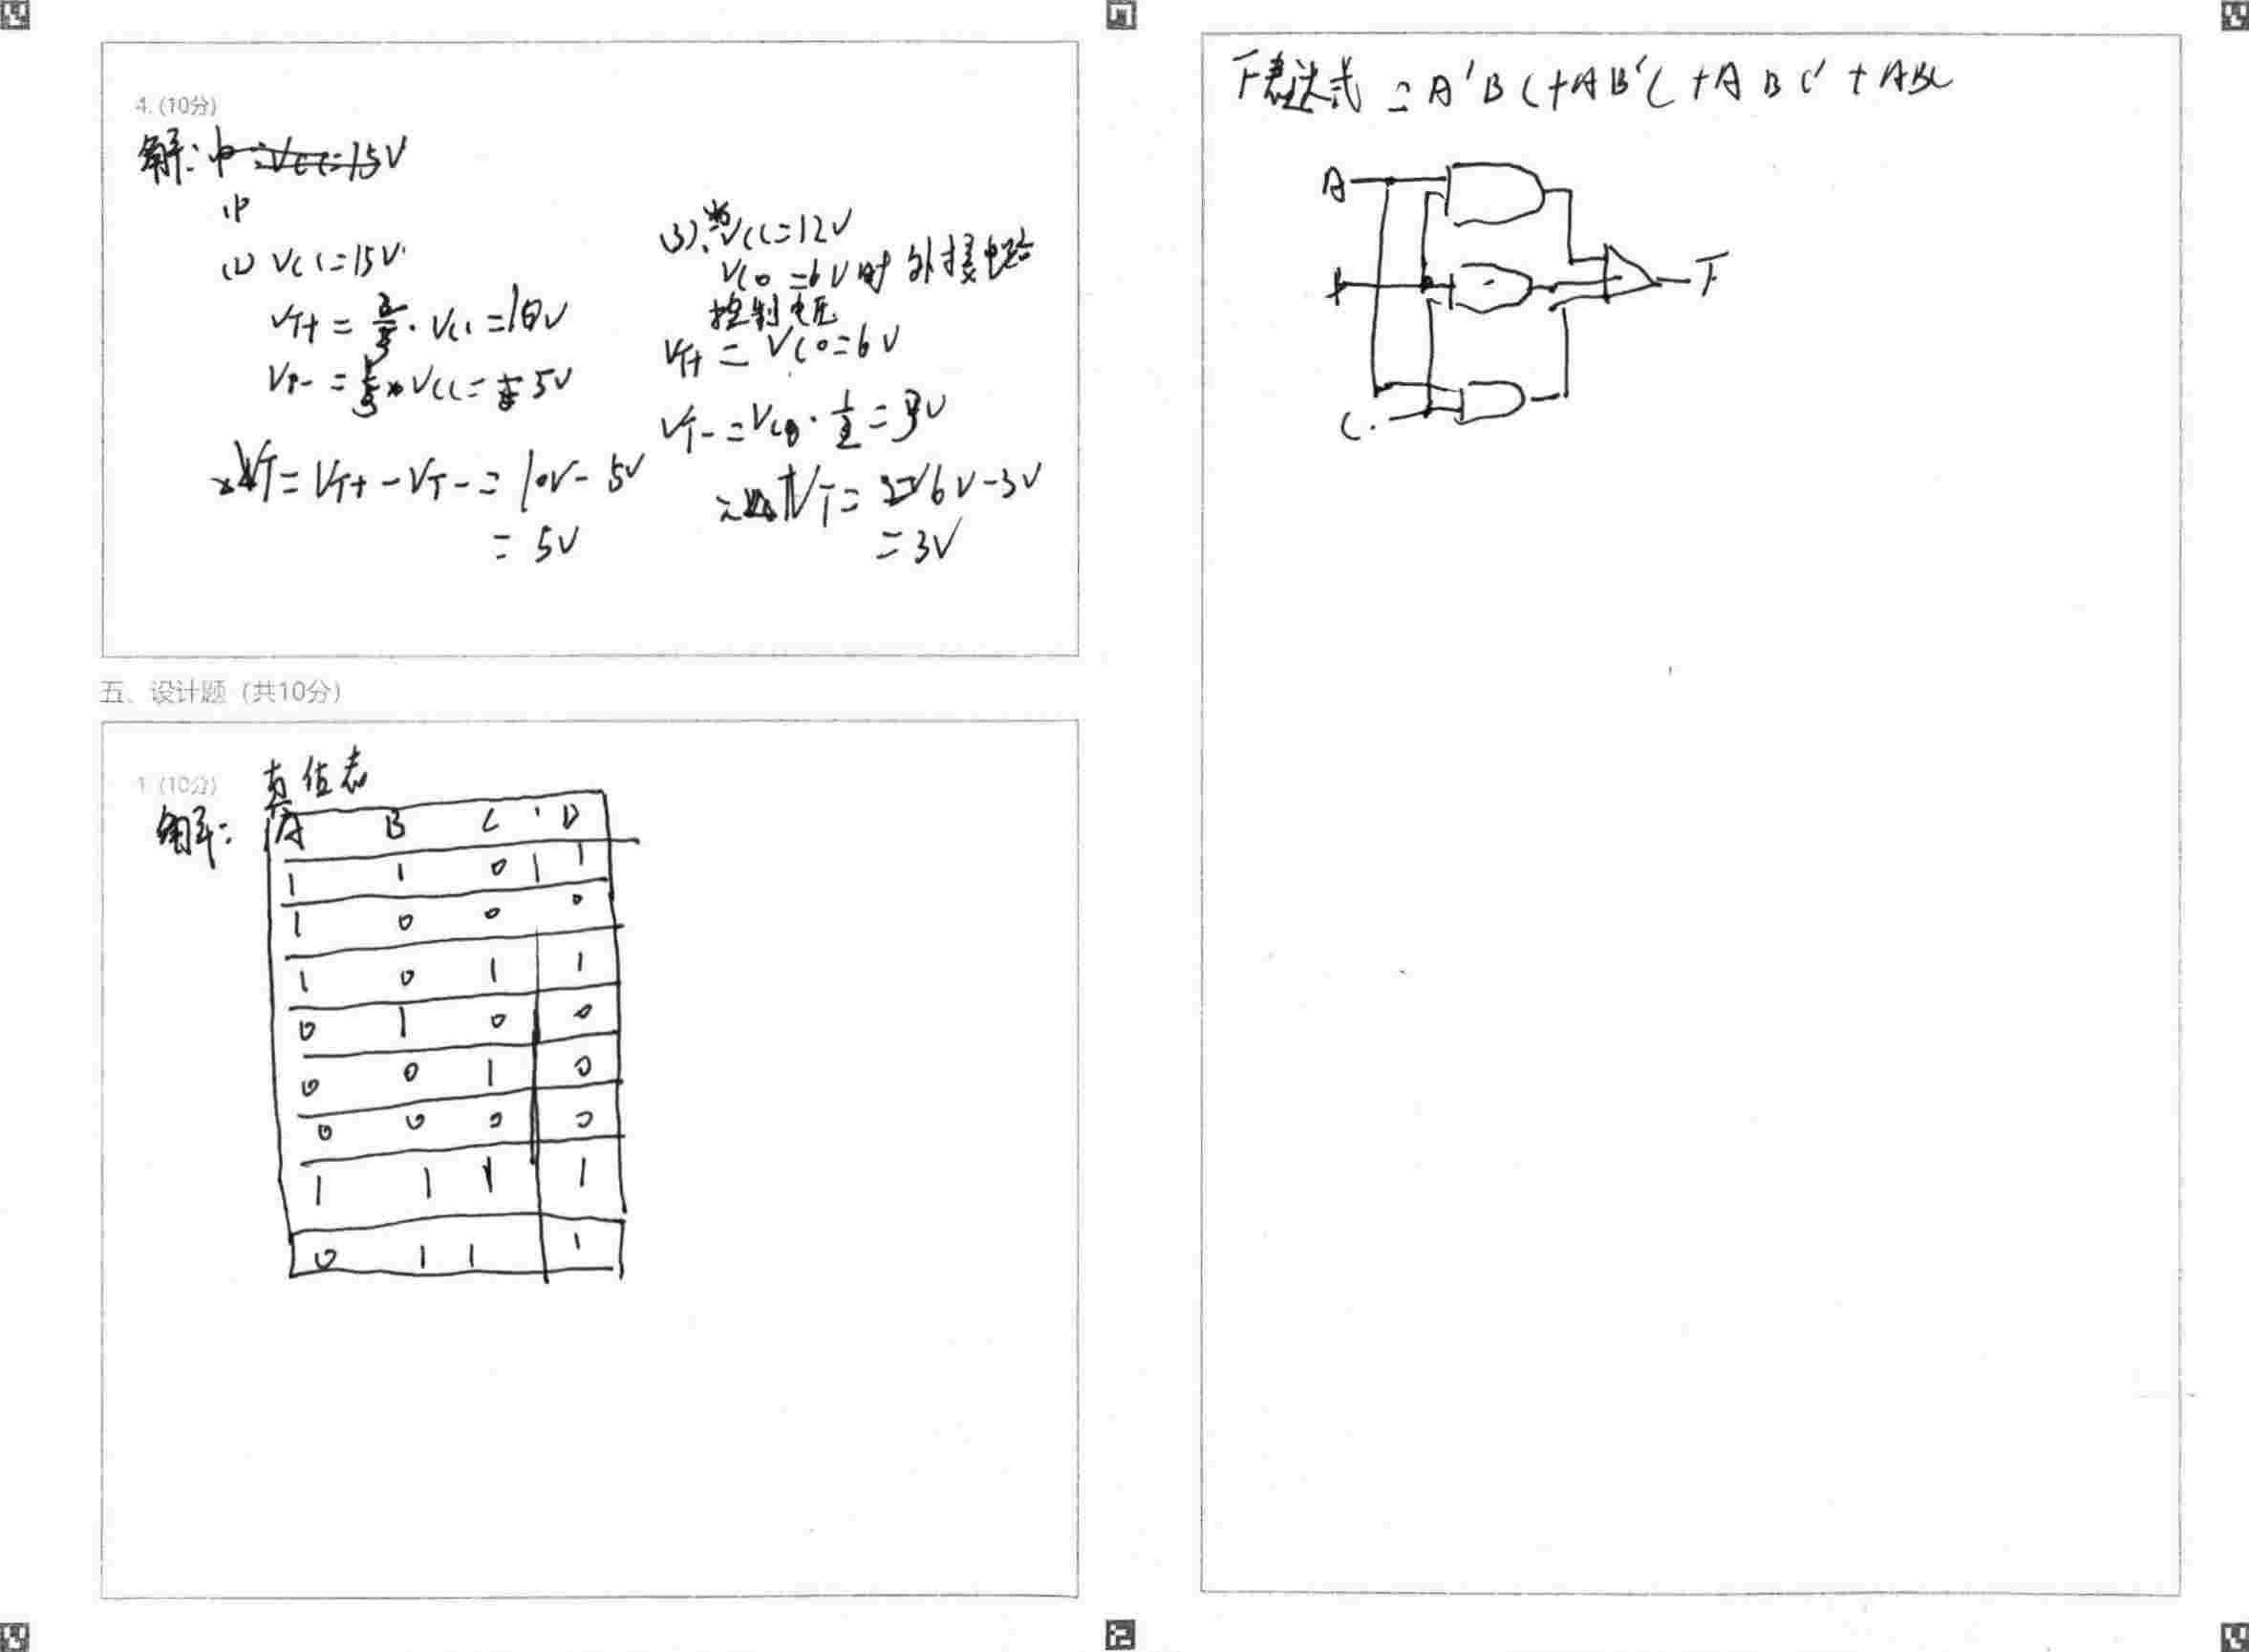 4. (10分)
解:
(1) VCC=15V
VT+ = 2/3 · VCC = 10V
VT- = 1/3 × VCC = 5V
VT = VT+ - VT- = 10V - 5V
= 5V
(3). 当VCC=12V
VCO=6V时 外接电路
控制电压
VT+ = VCO=6V
VT- = VCO · 1/2 = 3V
VT = 6V-3V
= 3V
五、设计题（共10分）
1. (10分)
真值表
解:
A B C D
1 1 0 1
1 0 0 0
1 0 1 1
0 1 0 0
0 0 1 0
0 0 0 0
1 1 1 1
0 1 1 1
F表达式 = A'BC+AB'C+ABC'+ABC
A
F
C